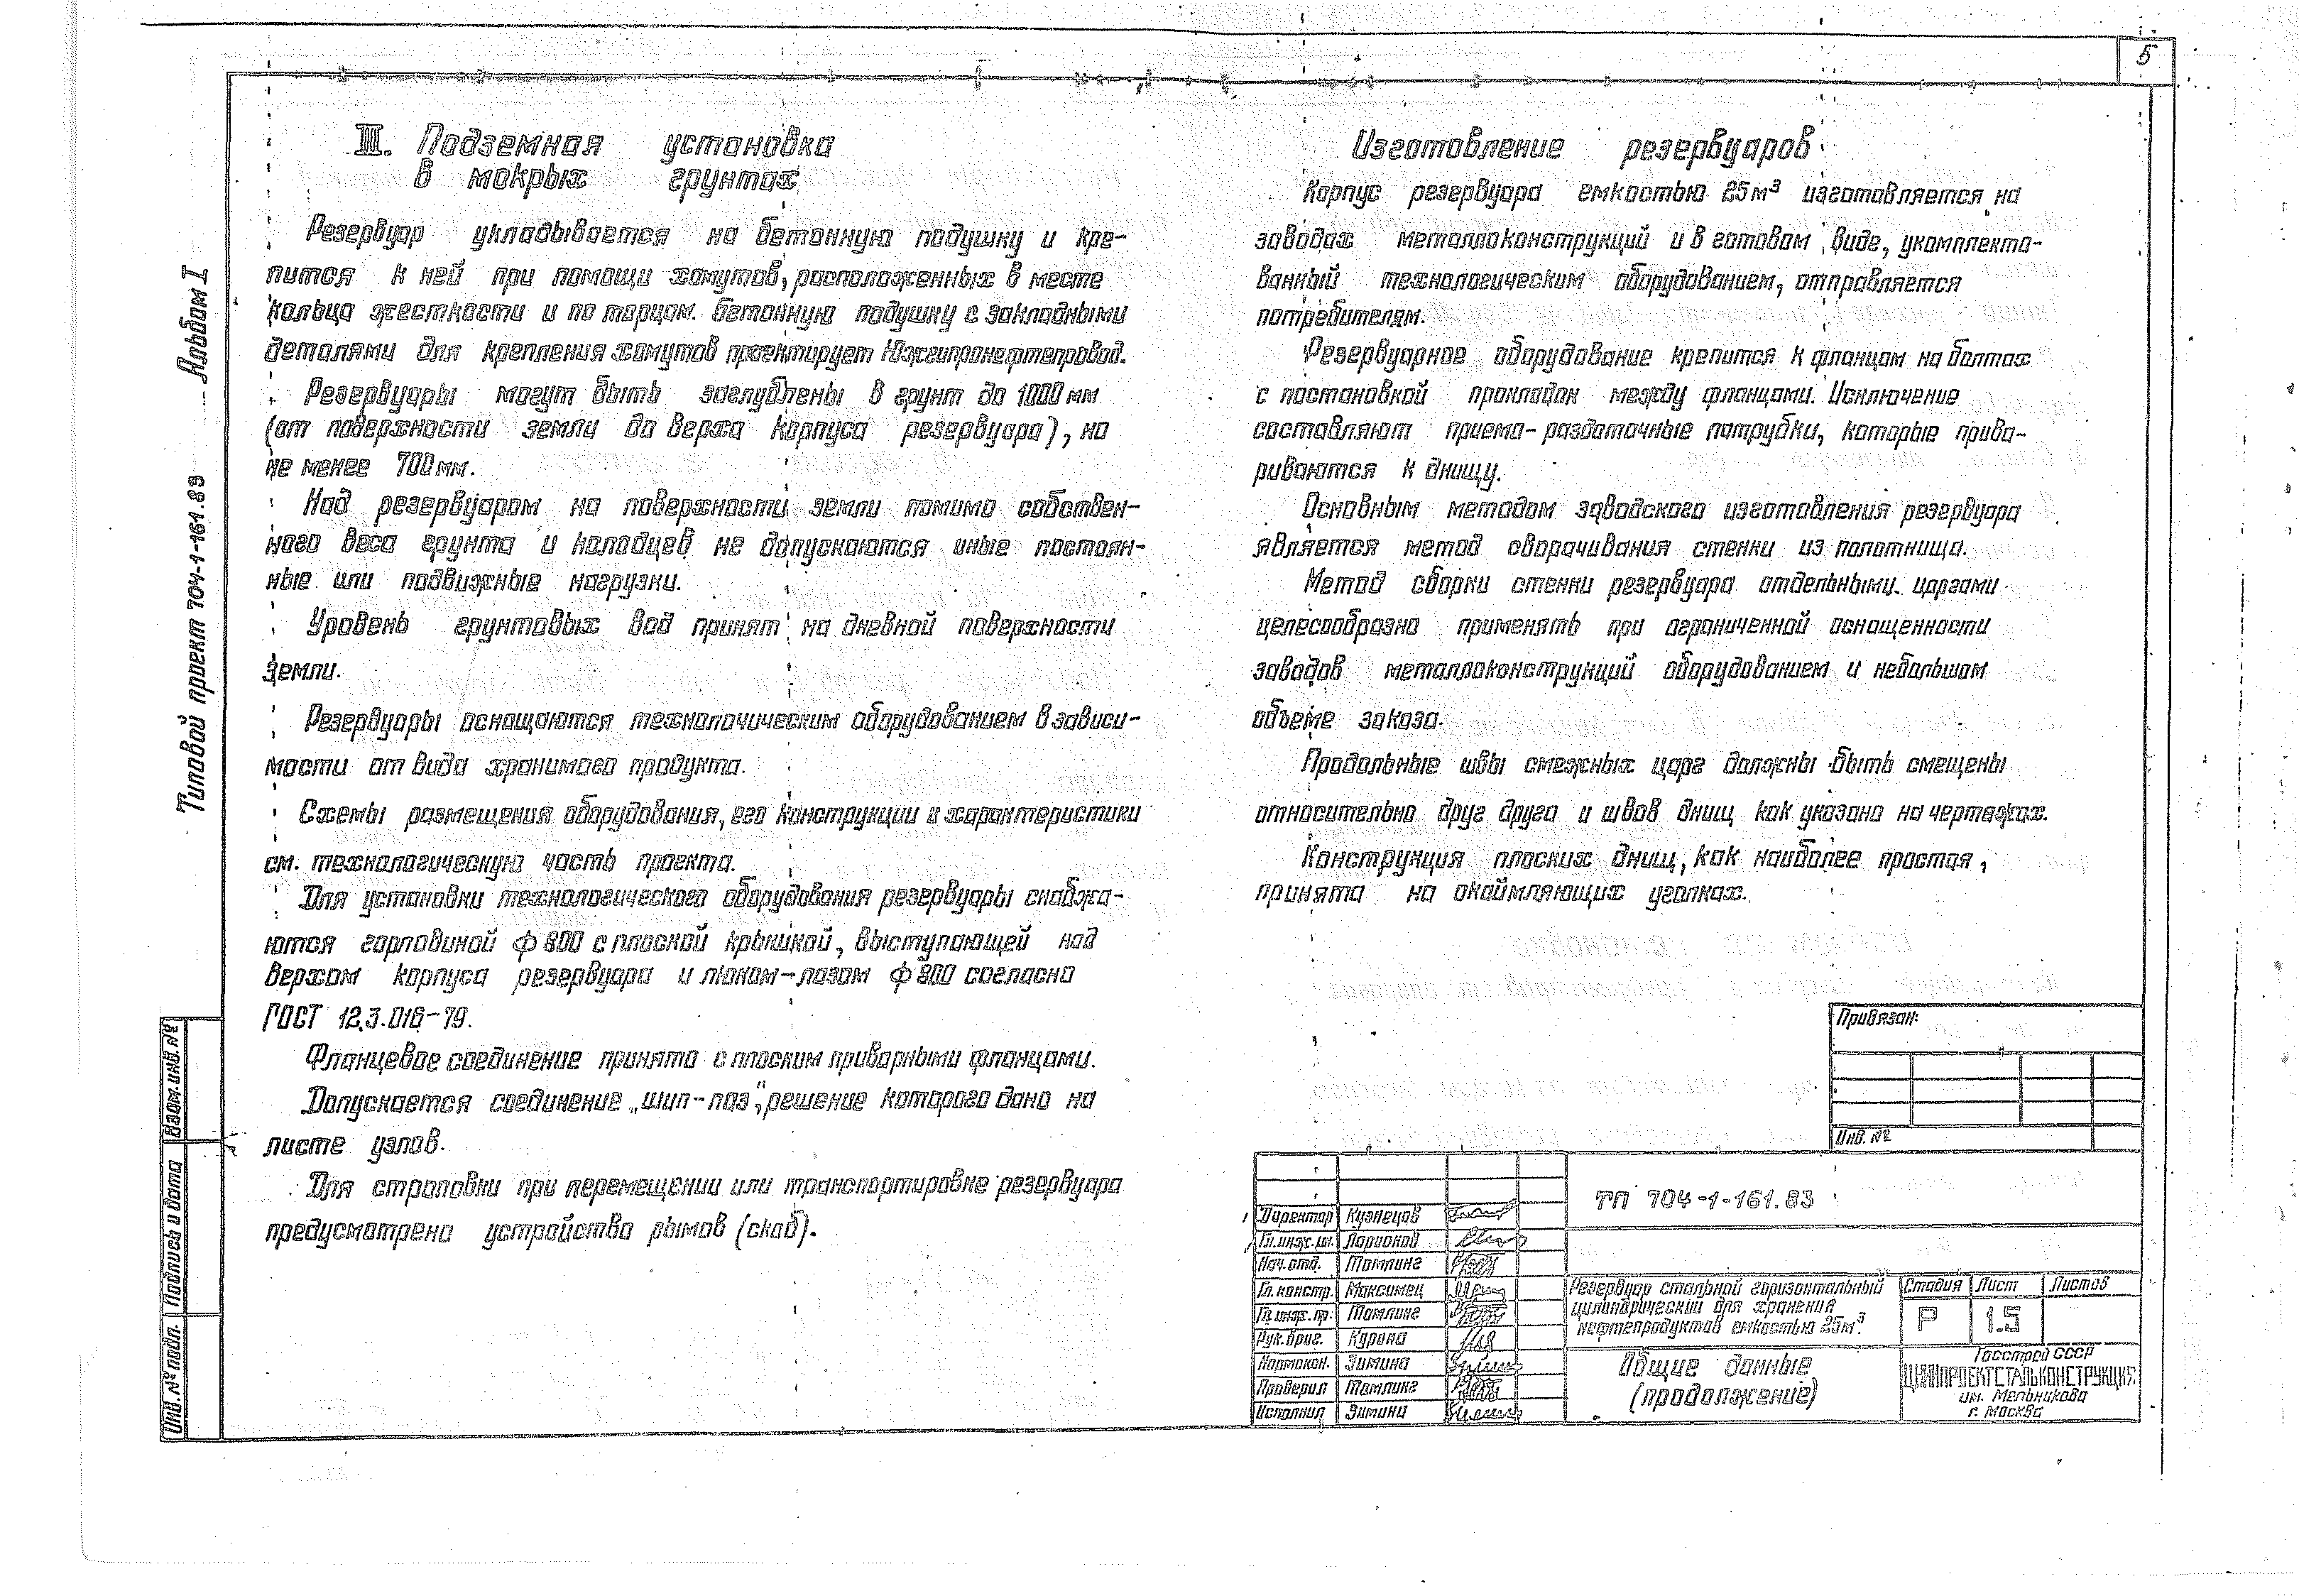 5
Альбом I
Типовой проект 704-1-161.83
III. Подземная установка
в мокрых грунтах
Резервуар укладывается на бетонную подушку и кре-
пится к ней при помощи хомутов, расположенных в месте
кольца жесткости и по торцам. Бетонную подушку с закладными
деталями для крепления хомутов проектирует Южгипронефтепровод.
Резервуары могут быть заглублены в грунт до 1000 мм
(от поверхности земли до верха корпуса резервуара), но
не менее 700 мм.
Над резервуаром на поверхности земли помимо собствен-
ного веса грунта и колодцев не допускаются иные постоян-
ные или подвижные нагрузки.
Уровень грунтовых вод принят на дневной поверхности
земли.
Резервуары оснащаются технологическим оборудованием в зависи-
мости от вида хранимого продукта.
Схемы размещения оборудования, его конструкции и характеристики
см. технологическую часть проекта.
Для установки технологического оборудования резервуары снабжа-
ются горловиной ф 800 с плоской крышкой, выступающей над
верхом корпуса резервуара и люком-лазом ф 800 согласно
ГОСТ 12.3.016-79.
Фланцевое соединение принято с плоским приварными фланцами.
Допускается соединение „шип-паз", решение которого дано на
листе узлов.
Для строповки при перемещении или транспортировке резервуара
предусмотрено устройство рымов (скоб).
Изготовление резервуаров
Корпус резервуара емкостью 25м³ изготовляется на
заводах металлоконструкций и в готовом виде, укомплекто-
ванный технологическим оборудованием, отправляется
потребителям.
Резервуарное оборудование крепится к фланцам на болтах
с постановкой прокладок между фланцами. Исключение
составляют приемо-раздаточные патрубки, которые прива-
риваются к днищу.
Основным методом заводского изготовления резервуара
является метод сворачивания стенки из полотнища.
Метод сборки стенки резервуара отдельными царгами
целесообразно применять при ограниченной оснащенности
заводов металлоконструкций оборудованием и небольшом
объеме заказа.
Продольные швы смежных царг должны быть смещены
относительно друг друга и швов днищ как указано на чертежах.
Конструкция плоских днищ, как наиболее простая,
принята на окаймляющих уголках.
Привязан:
Инв. №
ТП 704-1-161.83
Директор Кузнецов
Гл.инж.ин. Ларионов
Нач.отд. Томлинг
Гл.констр. Максимец
Гл.инж.пр. Томлинг
Рук.бриг. Курона
Нормокон. Зимина
Проверил Томлинг
Исполнил Зимина
Резервуар стальной горизонтальный
цилиндрический для хранения
нефтепродуктов емкостью 25м³.
Стадия Лист Листов
Р 1.5
Общие данные
(продолжение)
Госстрой СССР
ЦНИИПРОЕКТСТАЛЬКОНСТРУКЦИЯ
им. Мельникова
г. Москва
Взам. инв. №
Подпись и дата
Инв. № подл.